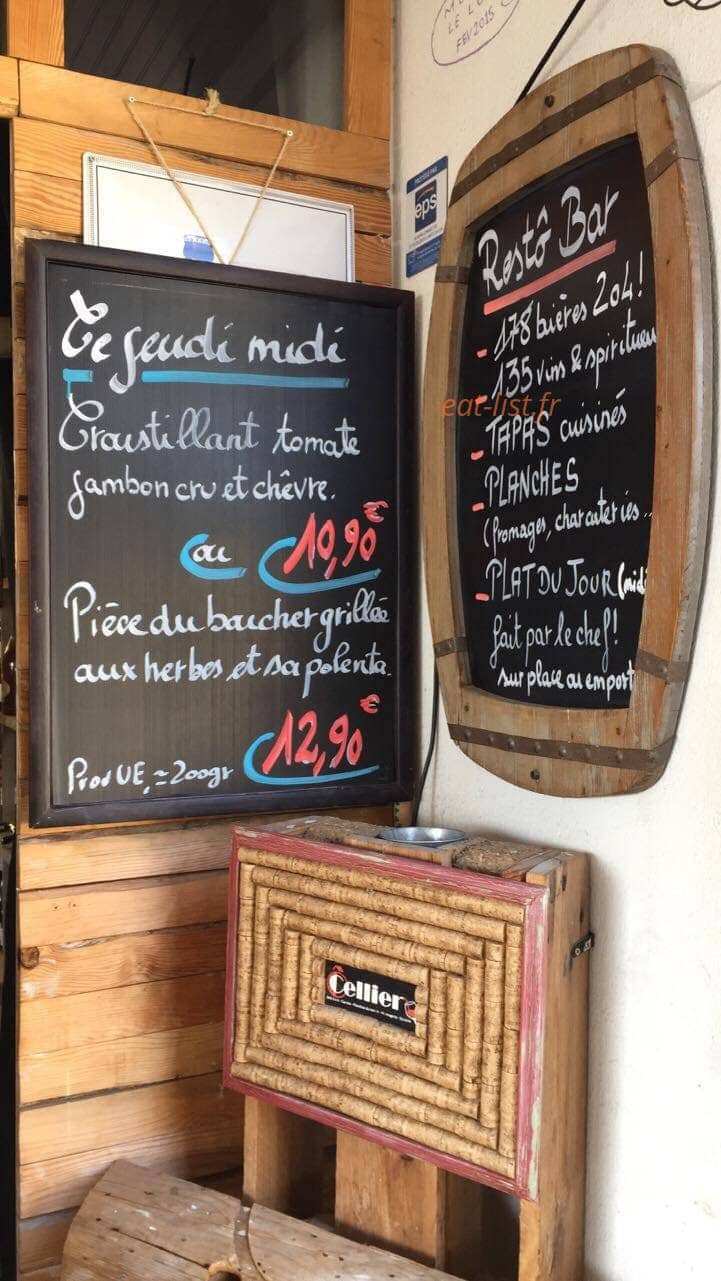 Ce jeudi midi
Croustillant tomate
jambon cru et chèvre.
ou 10,90€
Pièce du boucher grillée
aux herbes et sa polenta.
12,90€
Prov UE, ≃ 200gr
LE L
FEV 2015
eps
Restô Bar
- 178 bières 204!
- 135 vins & spiritueu
eat-list.fr
- TAPAS cuisinés
- PLANCHES
(fromages, charcuteries..
- PLAT DU JOUR (midi
fait par le chef!
sur place ou emport
Ô Cellier